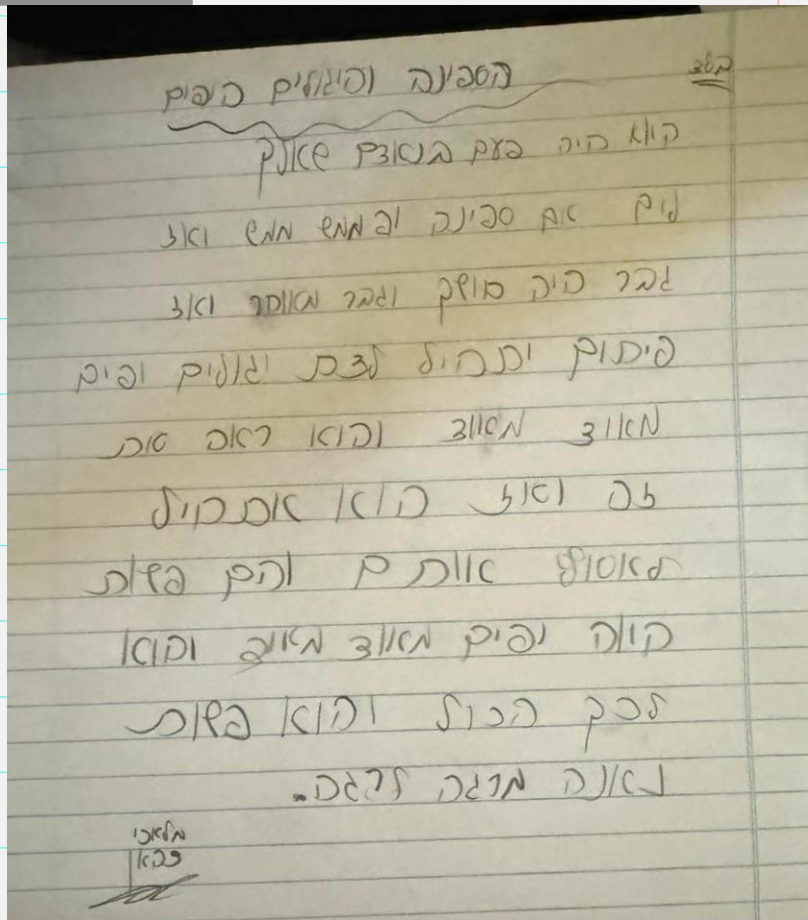 בסד
הספינה והיגולים היפים
הוא היה פעם בנאדם שאלך
לים אם ספינה יפה ממש ממש ואז
גבר היה חושך וגבר מאוחר ואז
פיתום יתחיל לצת יגולים יפים
מאוד מאווד והוא ראה את
זה ואז הוא אתחיל
לאסוף אותם והם פשות
היוה יפים מאווד מאוד והוא
לכך הכול והוא פשות
נאנה מרגה לרגה.
מלאכי